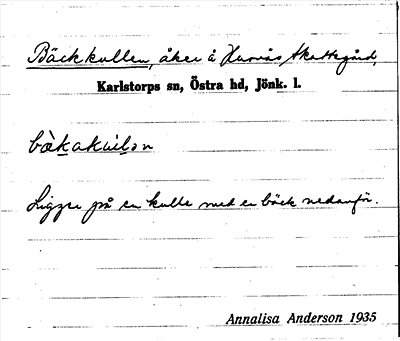 Bäckkullen, åker å Hurvås skattegård,
Karlstorps sn, Östra hd, Jönk. l.
bækakulən
Ligger på en kulle med en bäck nedanför.
Annalisa Anderson 1935